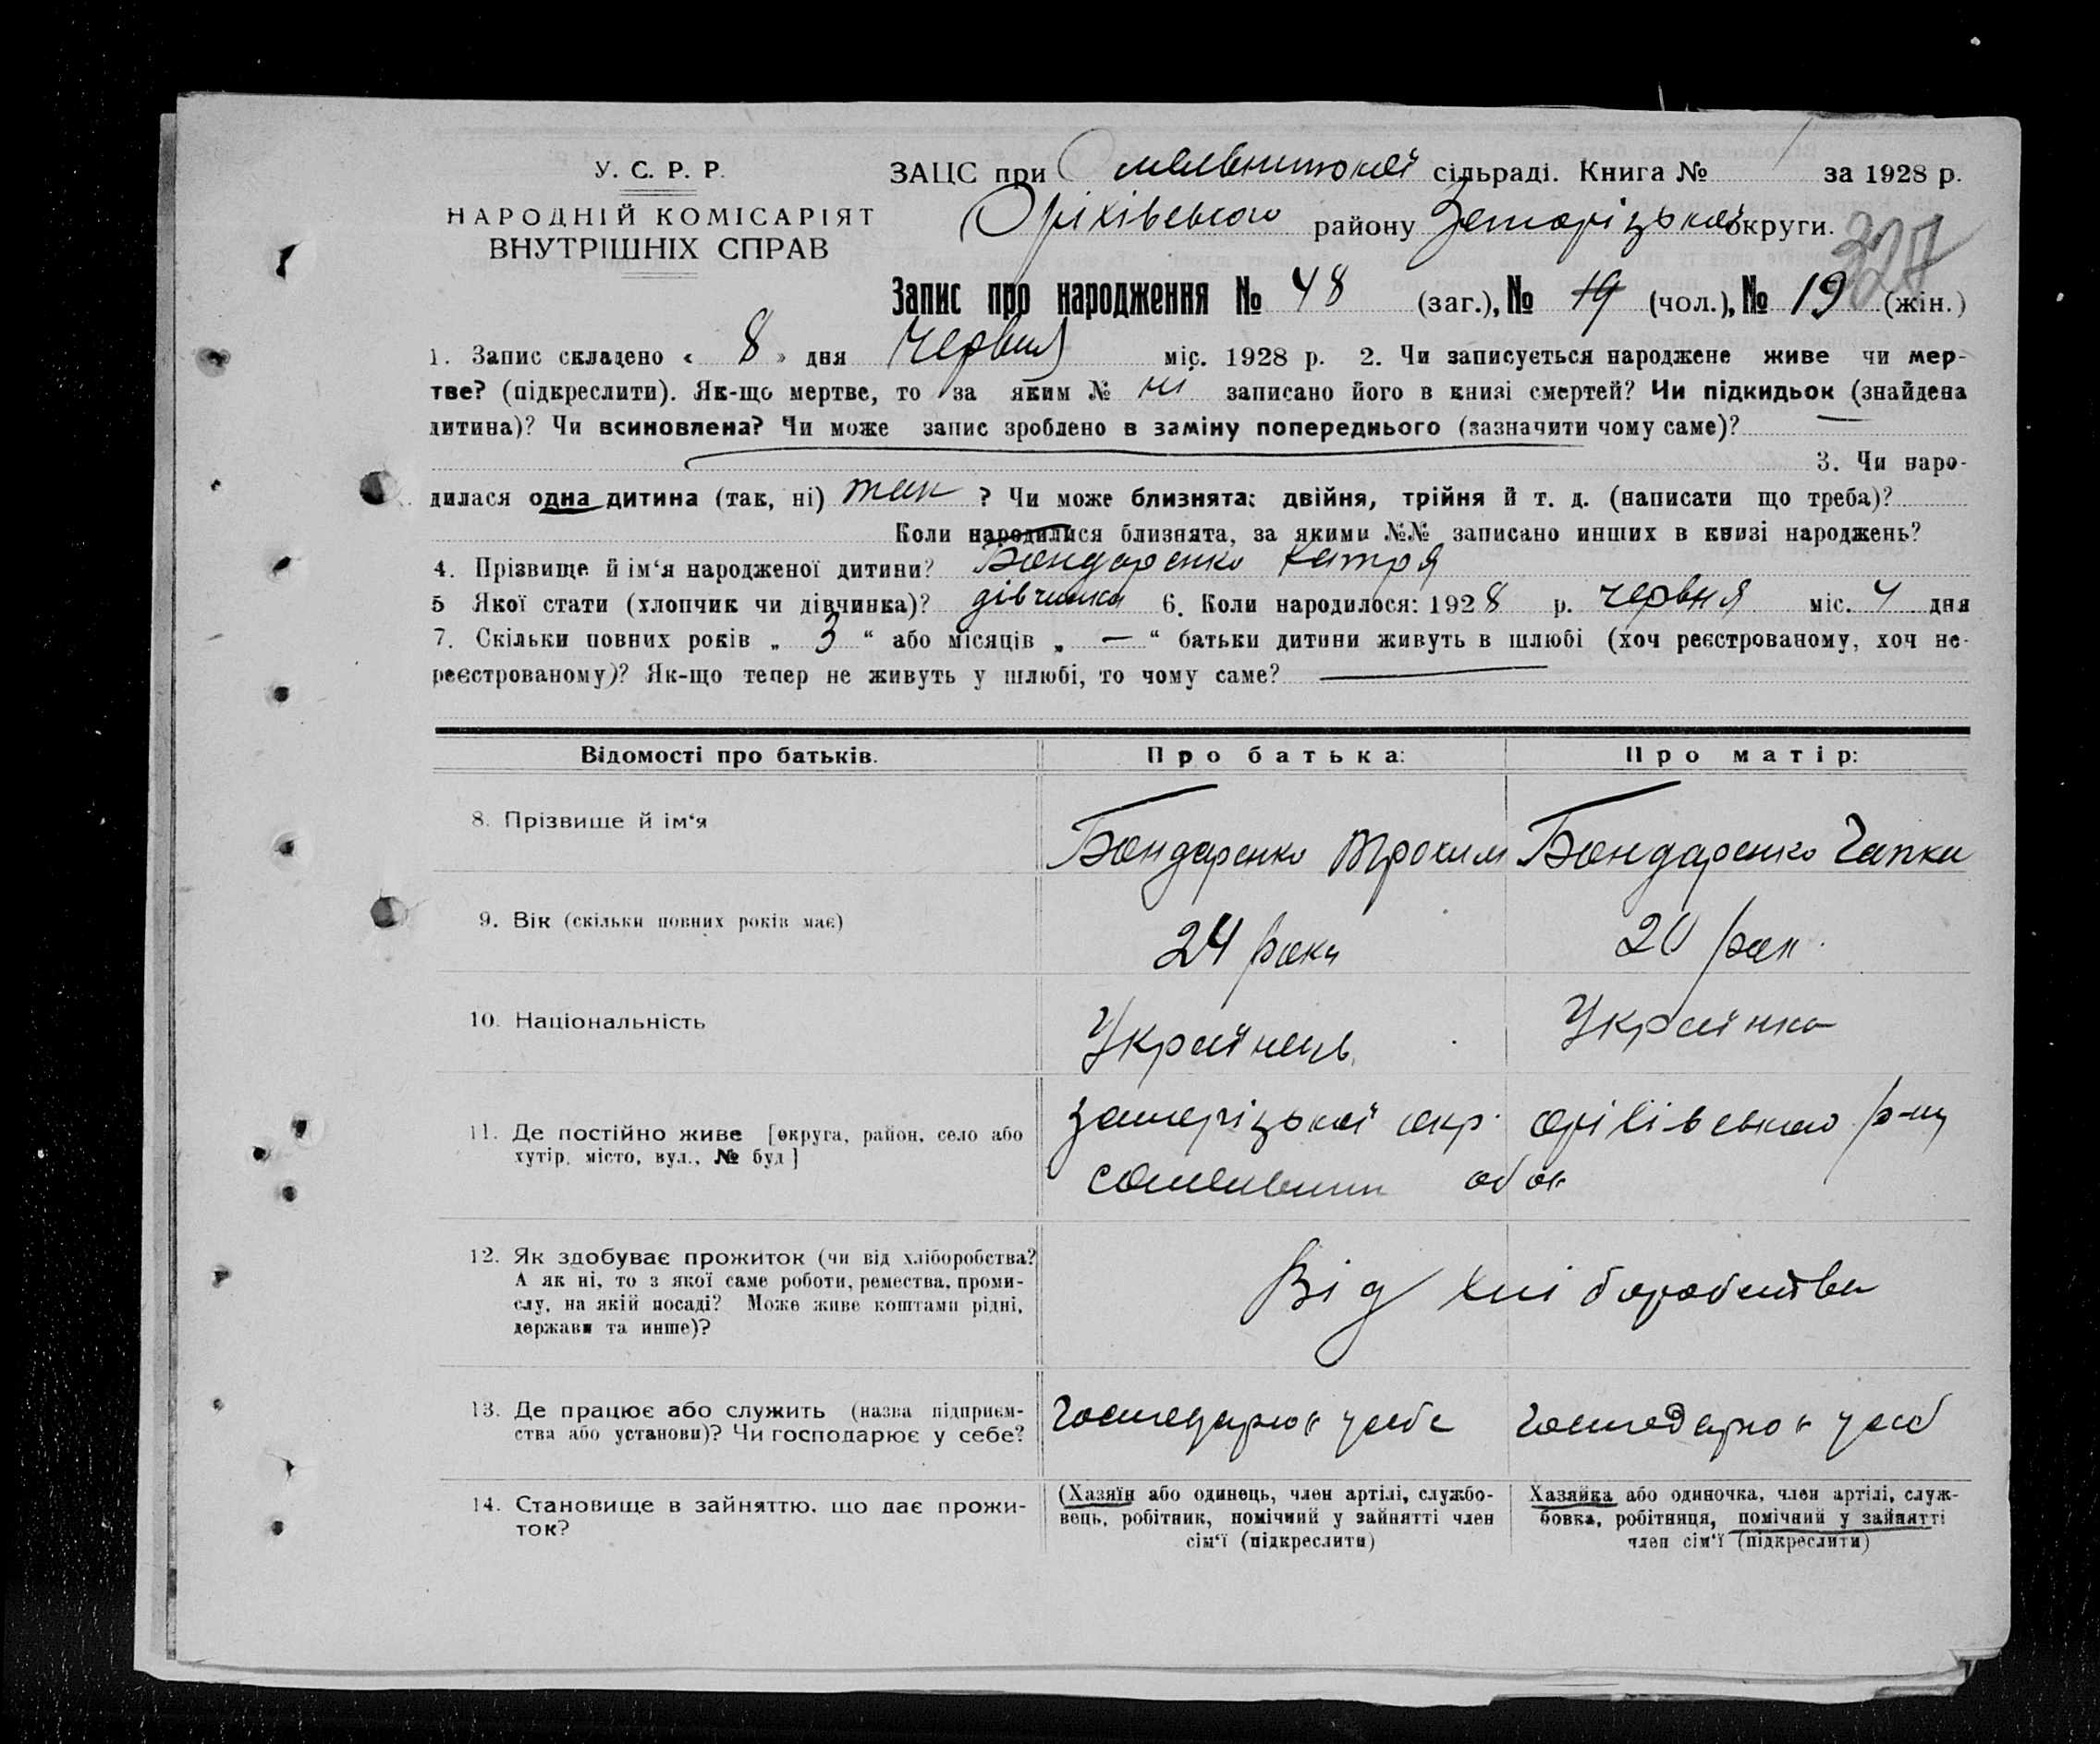 У. С. Р. Р.
НАРОДНІЙ КОМІСАРІЯТ
ВНУТРІШНІХ СПРАВ
ЗАЦС при Омельницької сільраді. Книга № за 1928 р.
Оріхівського району Запоріцької округи.
327
Запис про народження № 48 (заг.), № 19 (чол.), № 19 (жін.)
1. Запис складено « 8 » дня червня міс. 1928 р. 2. Чи записується народжене живе чи мер-
тве? (підкреслити). Як-що мертве, то за яким № ні записано його в книзі смертей? Чи підкидьок (знайдена
дитина)? Чи всиновлена? Чи може запис зроблено в заміну попереднього (зазначити чому саме)? —
3. Чи наро-
дилася одна дитина (так, ні) так ? Чи може близнята: двійня, трійня й т. д. (написати що треба)?
Коли народилися близнята, за якими №№ записано инших в книзі народжень?
4. Прізвище й ім‘я народженої дитини? Бондаренко Катря
5 Якої стати (хлопчик чи дівчинка)? дівчинка 6. Коли народилося: 1928 р. червня міс. 4 дня
7. Скільки повних років „ 3 “ або місяців „ — “ батьки дитини живуть в шлюбі (хоч реєстрованому, хоч не-
реєстрованому)? Як-що тепер не живуть у шлюбі, то чому саме? —
Відомості про батьків. Про батька: Про матір:
8. Прізвище й ім‘я Бондаренко Трохим Бондаренко Гапка
9. Вік (скільки повних років має) 24 роки 20 рок.
10. Національність Українець Українка
11. Де постійно живе [округа, район, село або
хутір, місто, вул., № буд]
Запоріцької окр. Оріхівського р-ну
с Омельник обоє
12. Як здобуває прожиток (чи від хліборобства?
А як ні, то з якої саме роботи, ремества, проми-
слу, на якій посаді? Може живе коштами рідні,
держави та инше)?
Від хліборобства
13. Де працює або служить (назва підприєм-
ства або установи)? Чи господарює у себе?
Господарює у себе Господарює у себ
14. Становище в зайняттю, що дає прожи-
ток?
(Хазяїн або одинець, член артілі, службо-
вець, робітник, помічний у зайнятті член
сім‘ї (підкреслити)
Хазяйка або одиночка, член артілі, служ-
бовка, робітниця, помічний у зайнятті
член сім‘ї (підкреслити)